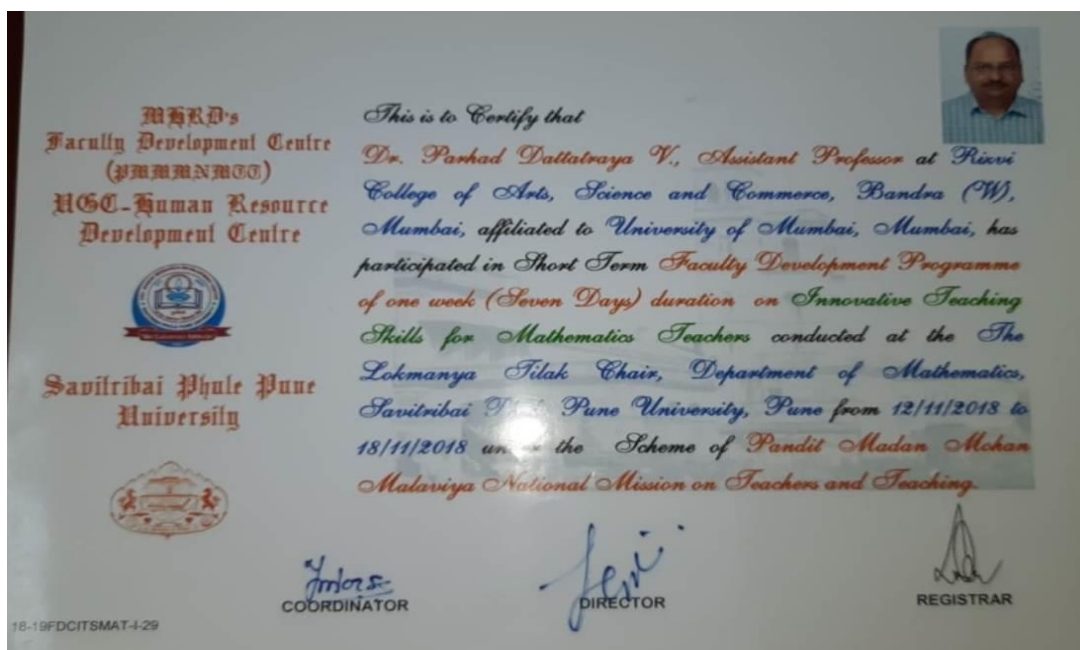 MHRD's
Faculty Development Centre
(PMMMNMTT)
UGC-Human Resource
Development Centre
Savitribai Phule Pune
University
This is to Certify that
Dr. Parhad Dattatraya V., Assistant Professor at Rizvi
College of Arts, Science and Commerce, Bandra (W),
Mumbai, affiliated to University of Mumbai, Mumbai, has
participated in Short Term Faculty Development Programme
of one week (Seven Days) duration on Innovative Teaching
Skills for Mathematics Teachers conducted at the The
Lokmanya Tilak Chair, Department of Mathematics,
Savitribai Pune University, Pune from 12/11/2018 to
18/11/2018 the Scheme of Pandit Madan Mohan
Malaviya National Mission on Teachers and Teaching.
COORDINATOR
DIRECTOR
REGISTRAR
18-19FDCITSMAT-I-29